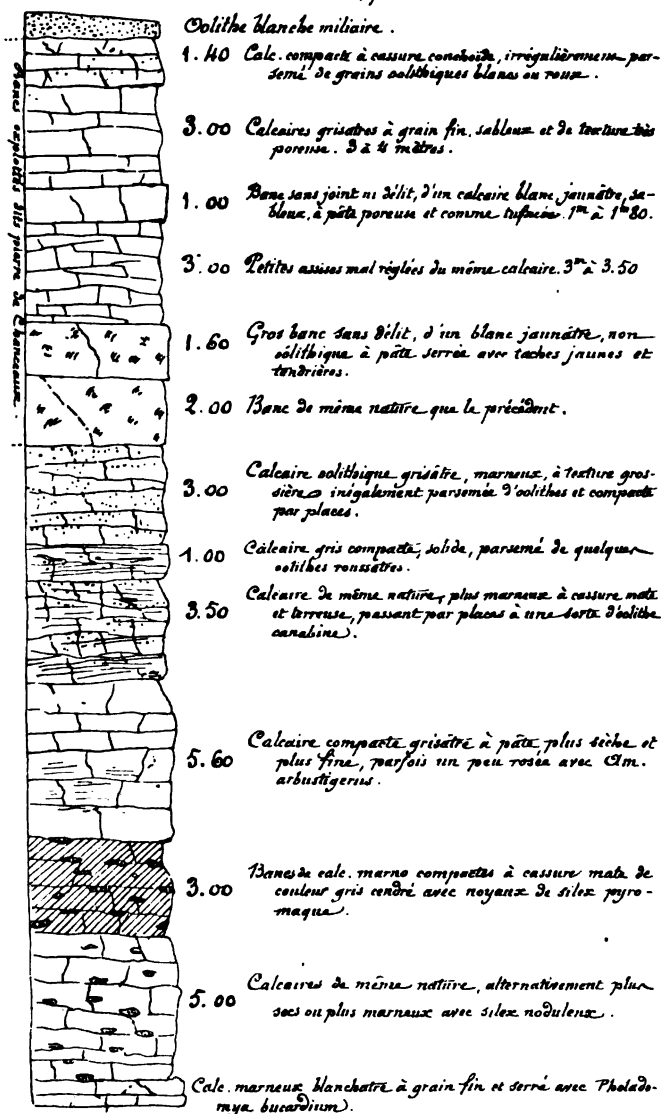 Oolithe blanche miliaire.
1.40 Calc. compacte à cassure conchoïde, irrégulièremens par-
semé de grains oolithiques blancs ou roux.
3.00 Calcaires grisatres à grain fin, sableux et de texture très
poreuse. 3 à 4 mètres.
1.00 Banc sans joint ni délit, d'un calcaire blanc jaunâtre, sa-
bleux, à pâte poreuse et comme tufacée. 1m à 1m80.
3.00 Petites assises mal réglées du même calcaire. 3m à 3.50
1.60 Gros banc sans délit, d'un blanc jaunâtre, non
oolithique à pâte serrée avec taches jaunes et
tendrières.
2.00 Banc de même nature que le précédent.
Bancs exploités dits pierre de Chanceaux.
3.00 Calcaire oolithique grisâtre, marneux, à texture gros-
sière inégalement parsemée d'oolithes et compacte
par places.
1.00 Calcaire gris compacte, solide, parsemé de quelques
oolithes roussatres.
3.50 Calcaire de même nature, plus marneux à cassure mate
et terreuse, passant par places à une sorte d'oolithe
canabine.
5.60 Calcaire compacte grisâtre à pâte plus sèche et
plus fine, parfois un peu rosée avec Am.
arbustigerus.
3.00 Bancs de calc. marno compactes à cassure mate de
couleur gris cendré avec noyaux de silex pyro-
maque.
5.00 Calcaires de même nature, alternativement plus
secs ou plus marneux avec silex noduleux.
Calc. marneux blanchatre à grain fin et serré avec Pholado-
mya bucardium.